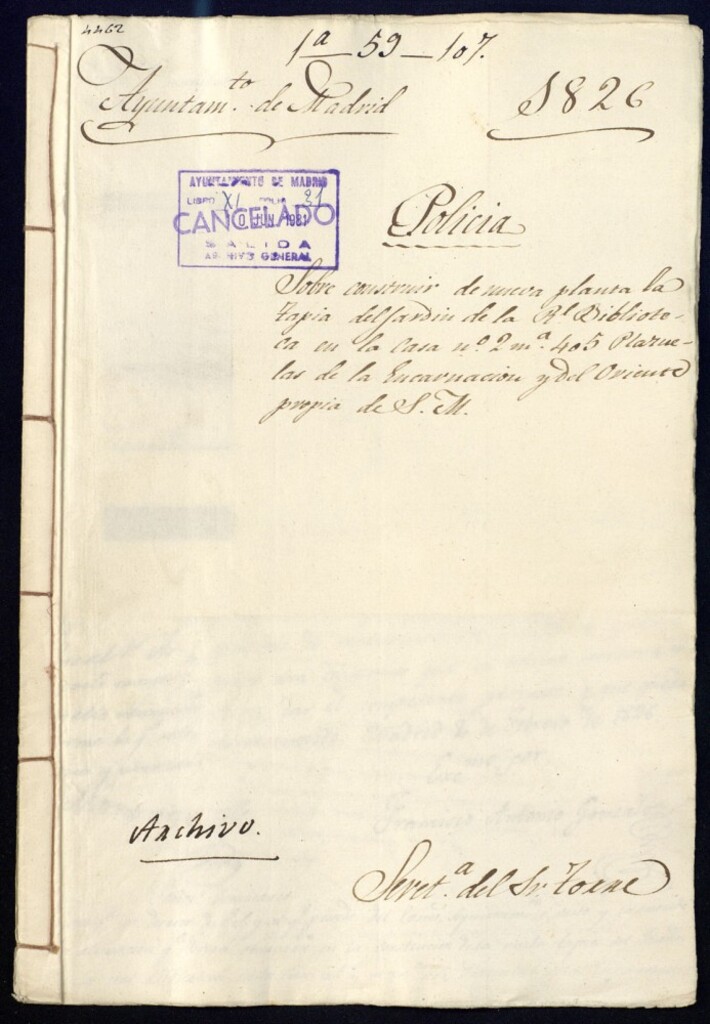 4462
1ª — 59 — 107.
Ayuntam.to de Madrid
1826
AYUNTAMIENTO DE MADRID
LIBRO XI FOLIO 31
CANCELADO
JUN. 1981
SALIDA
ARCHIVO GENERAL
Policia
Sobre construir de nueva planta la
tapia del Jardin de la Rl. Bibliote-
ca en la Casa nº. 2 mª. 405 Plazue-
las de la Encarnacion y del Oriente
propia de S. M.
Archivo.
Secret.ª del Sr.